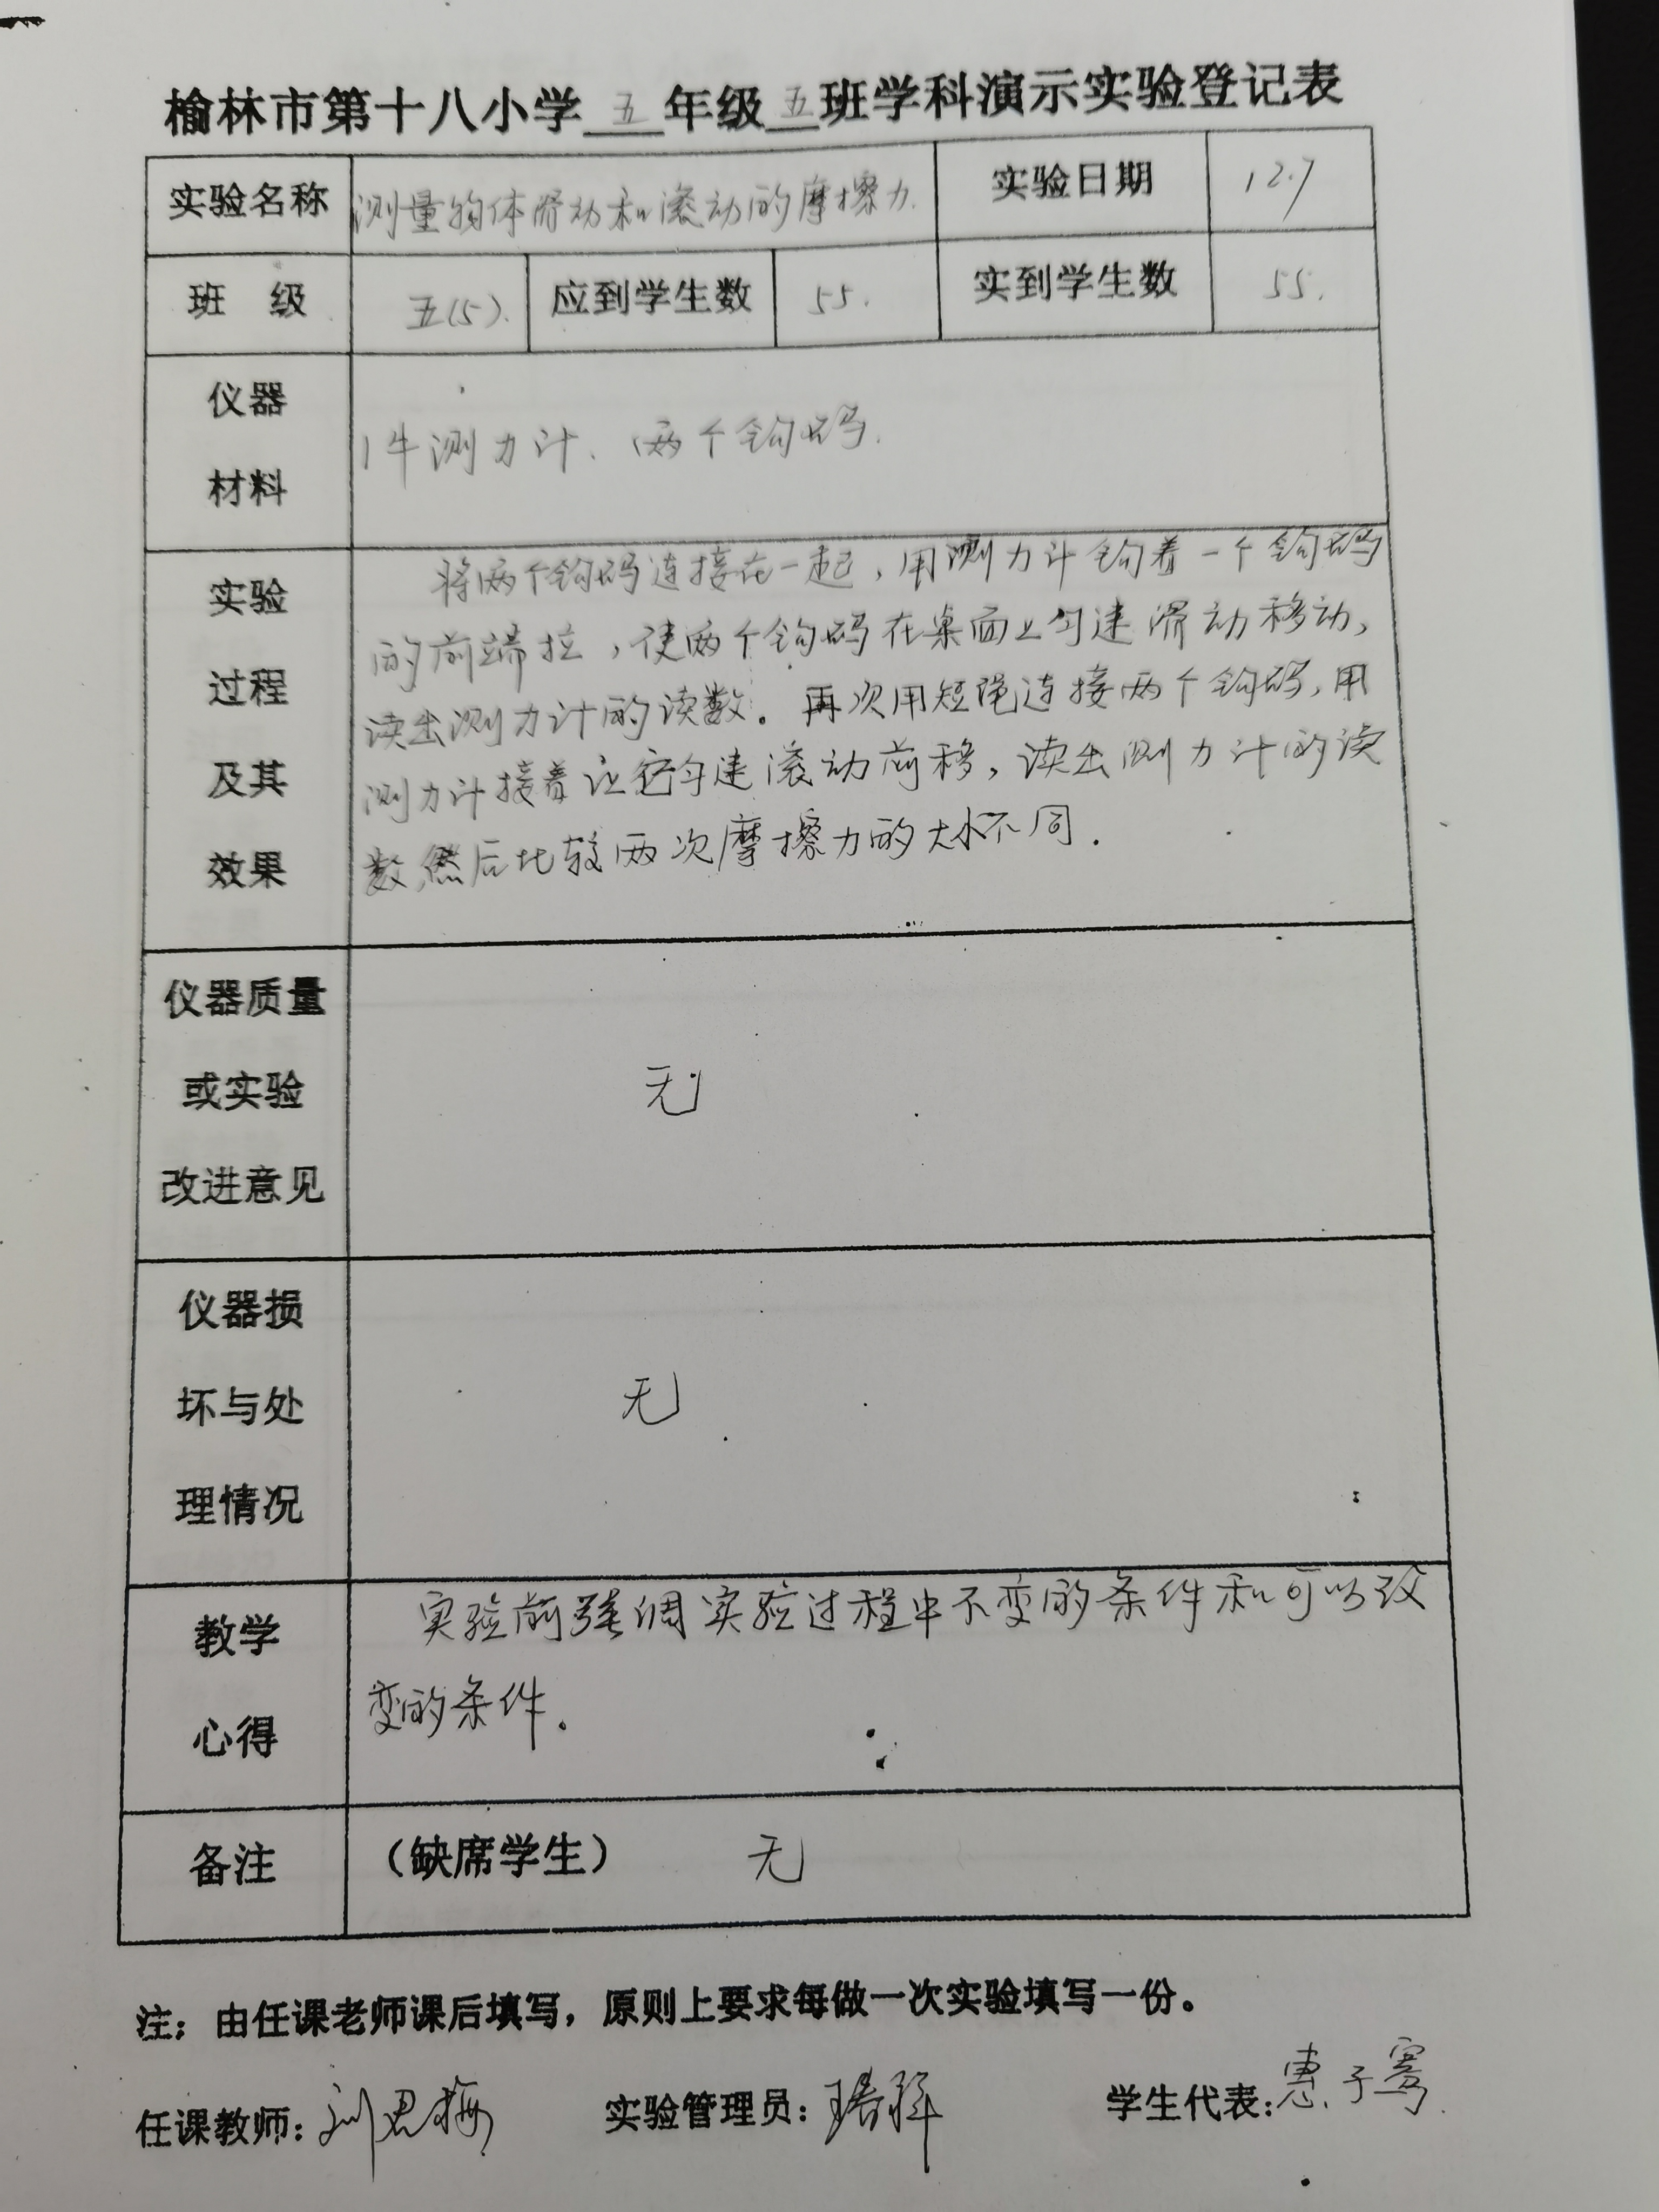 榆林市第十八小学 五 年级 五 班学科演示实验登记表
实验名称 测量物体滑动和滚动的摩擦力. 实验日期 12.7
班 级 五(5). 应到学生数 55. 实到学生数 55.
仪器
1牛测力计、两个钩码.
材料
将两个钩码连接在一起,用测力计钩着一个钩码
实验
的前端拉,使两个钩码在桌面上匀速滑动移动,
过程
读出测力计的读数。再次用短绳连接两个钩码,用
及其
测力计接着让它匀速滚动前移,读出测力计的读
效果
数,然后比较两次摩擦力的大小不同.
仪器质量
或实验
无
改进意见
仪器损
坏与处
无
理情况
实验前强调实验过程中不变的条件和可以改
教学
变的条件。
心得
备注 (缺席学生) 无
注:由任课老师课后填写,原则上要求每做一次实验填写一份。
任课教师: 实验管理员: 学生代表:惠子骞